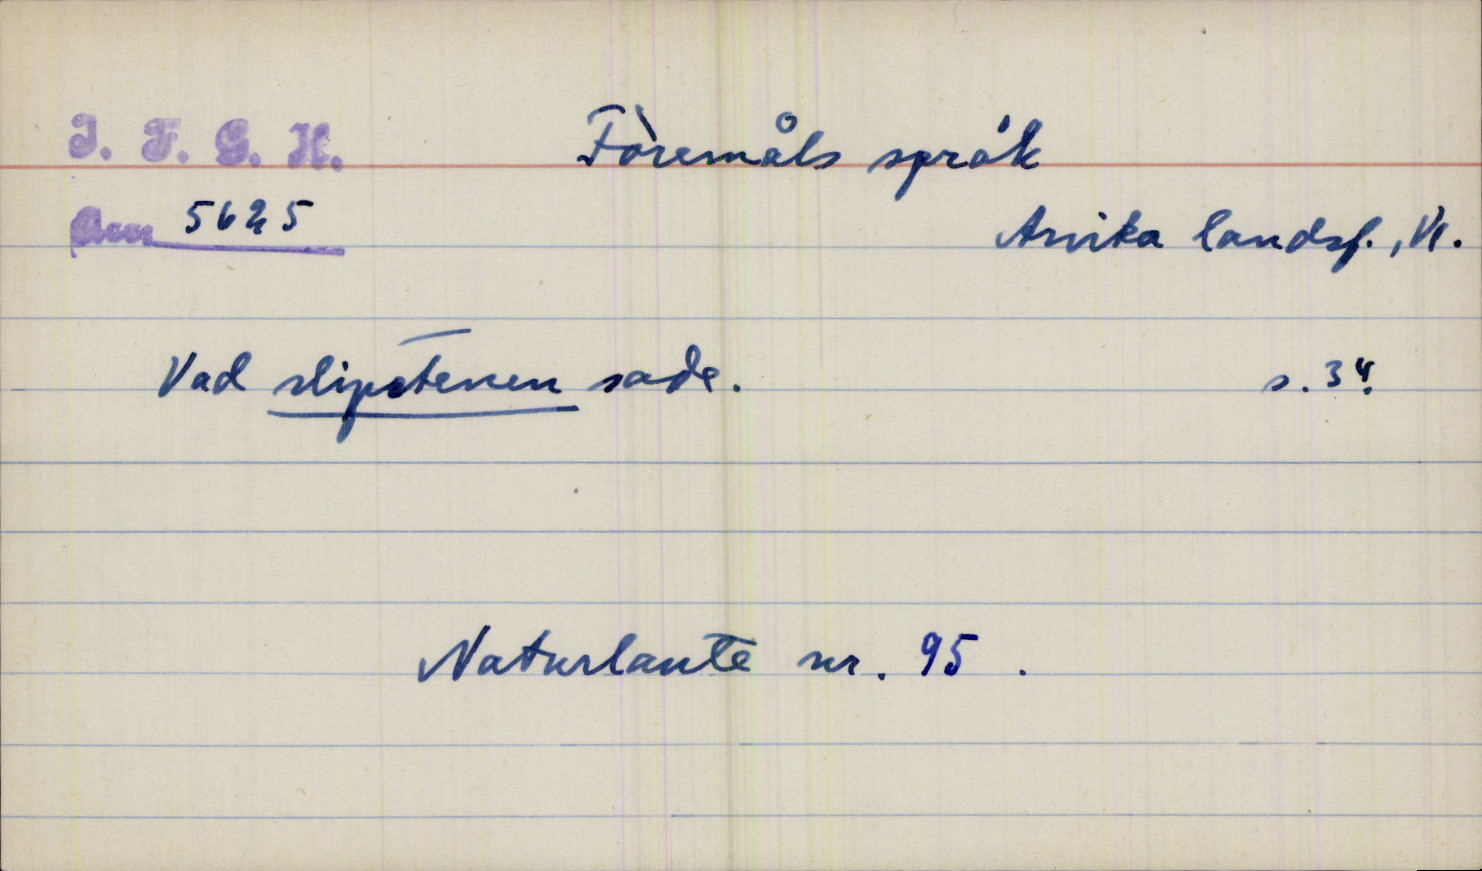 I. F. G. H.
Föremåls språk
Acc 5625
Arvika landsf., Vl.
Vad slipstenen sade.
s. 34.
Naturlaute nr. 95.